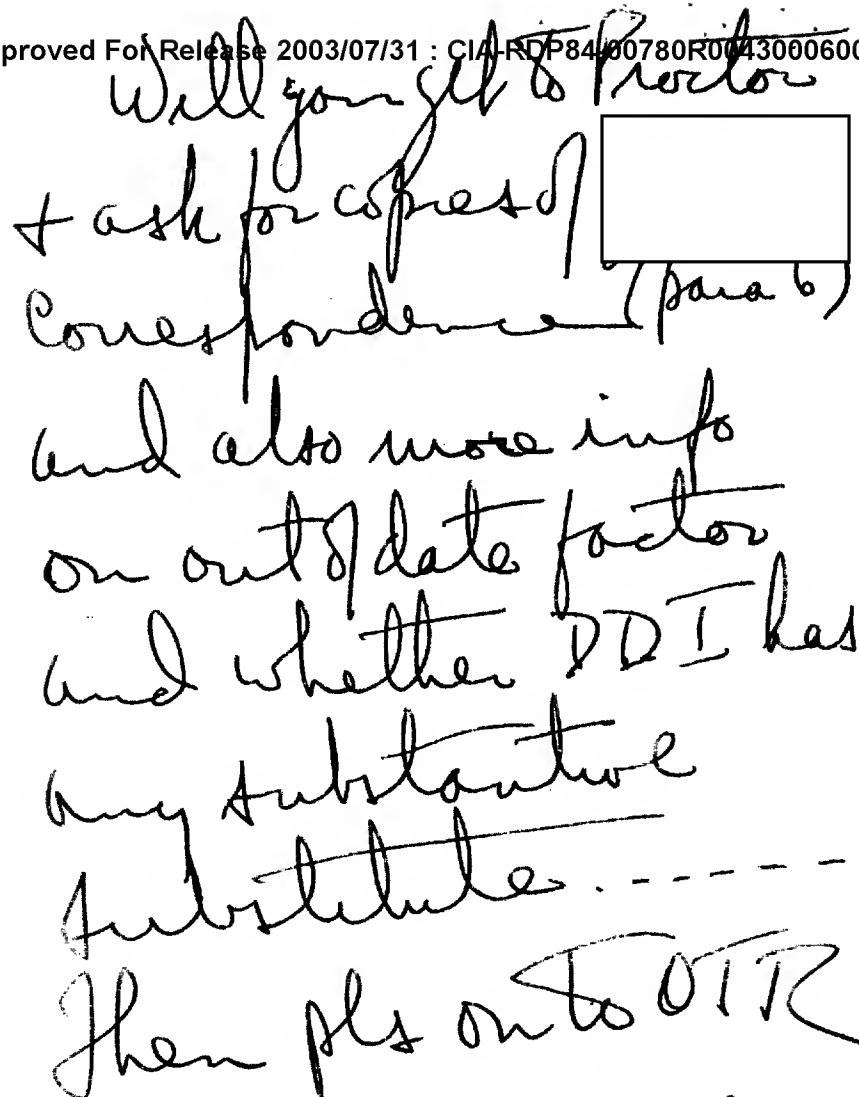 proved For Release 2003/07/31 : CIA-RDP84-00780R0043000600
Will you get to Proctor
+ ask for copies of
Correspondence (para 6)
and also more info
on out of date factor
and whether DDI has
any substantive
substitute . - - - - -
Then pls on to OTR